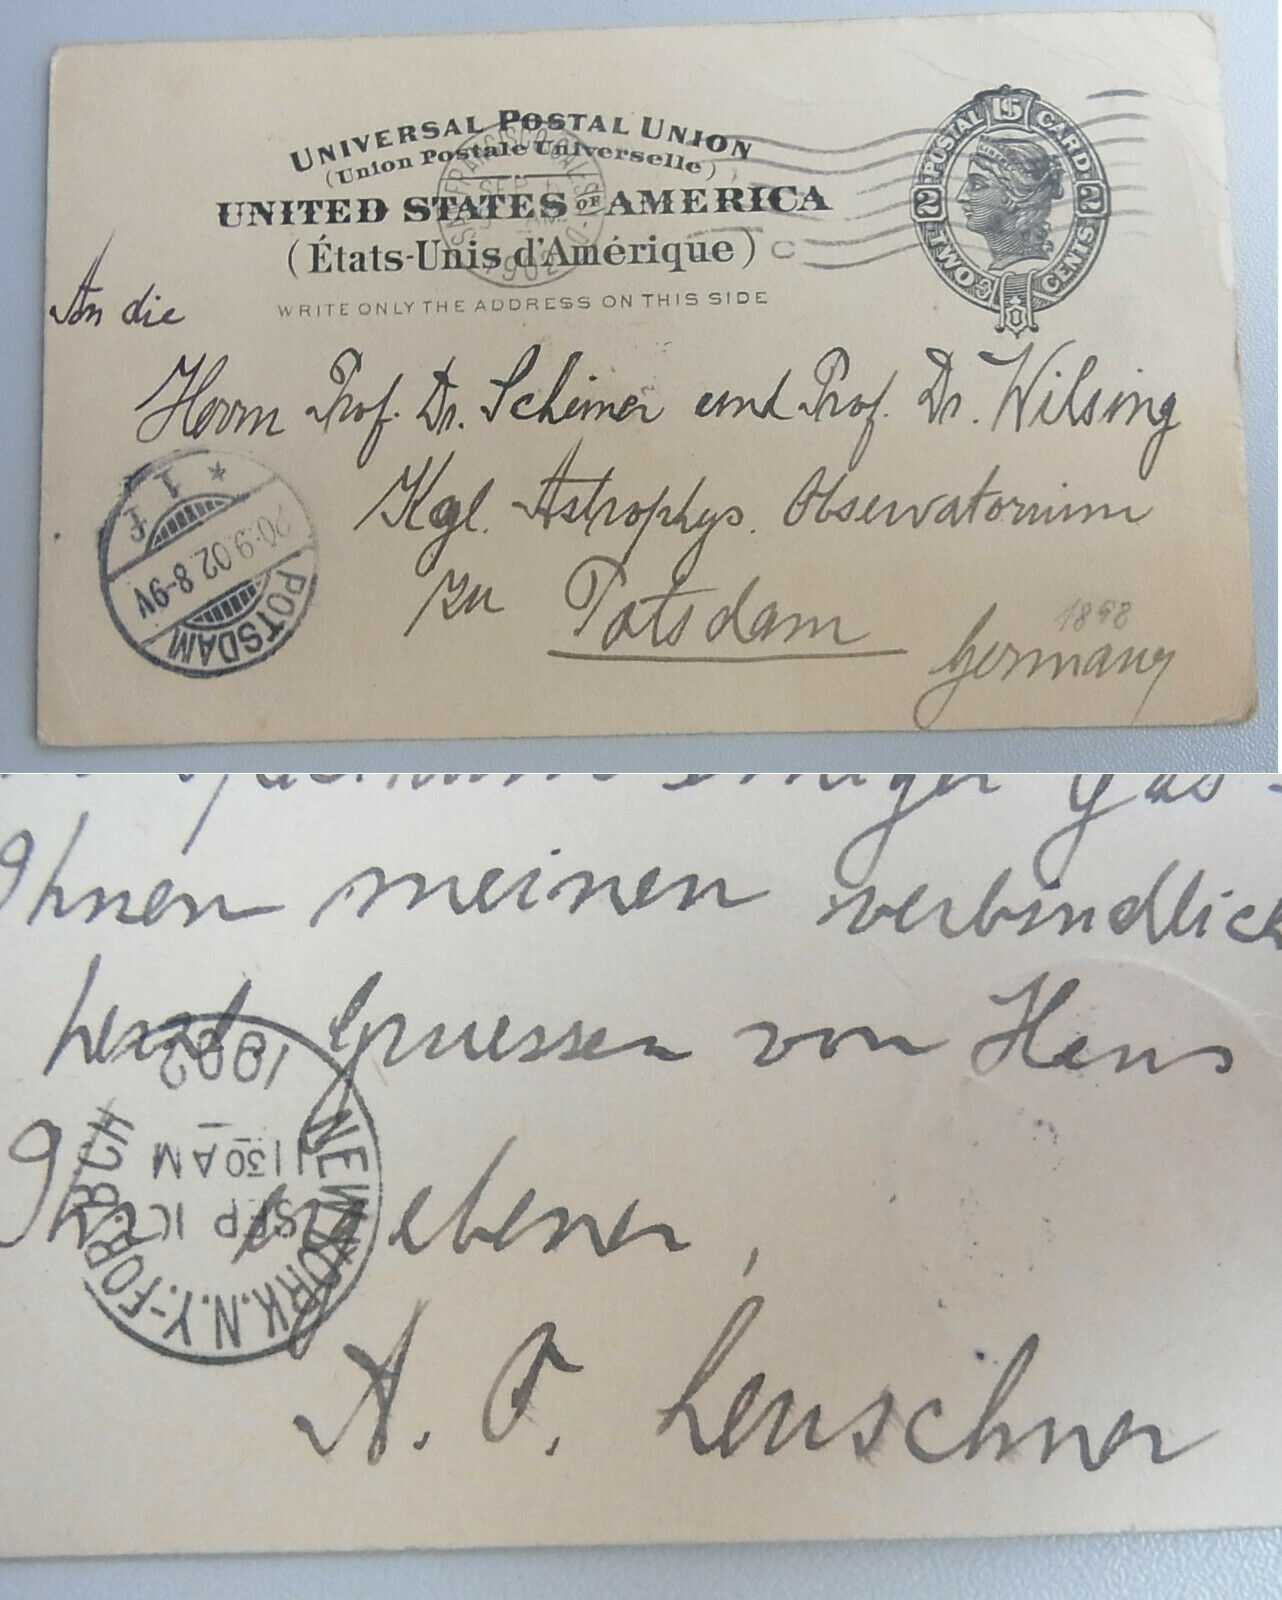 UNIVERSAL POSTAL UNION
(Union Postale Universelle)
UNITED STATES OF AMERICA
(États-Unis d'Amérique)
WRITE ONLY THE ADDRESS ON THIS SIDE
POSTAL 1 CARD
2 TWO CENTS 2
SAN FRANCISCO, CAL.
SEP
AM
1902
An die
Herrn Prof. Dr. Scheiner und Prof. Dr. Wilsing
Kgl. Astrophys. Observatorium
zu Potsdam
1898
Germany
POTSDAM
20.9.02. 8-9V
* 1 f
einiger Gas-
Ihnen meinen verbindlich
herzl. Gruessen von Haus
Ihr ergebener,
A. O. Leuschner
NEW YORK, N.Y.-FOR. BCH
SEP
1130 AM
1902